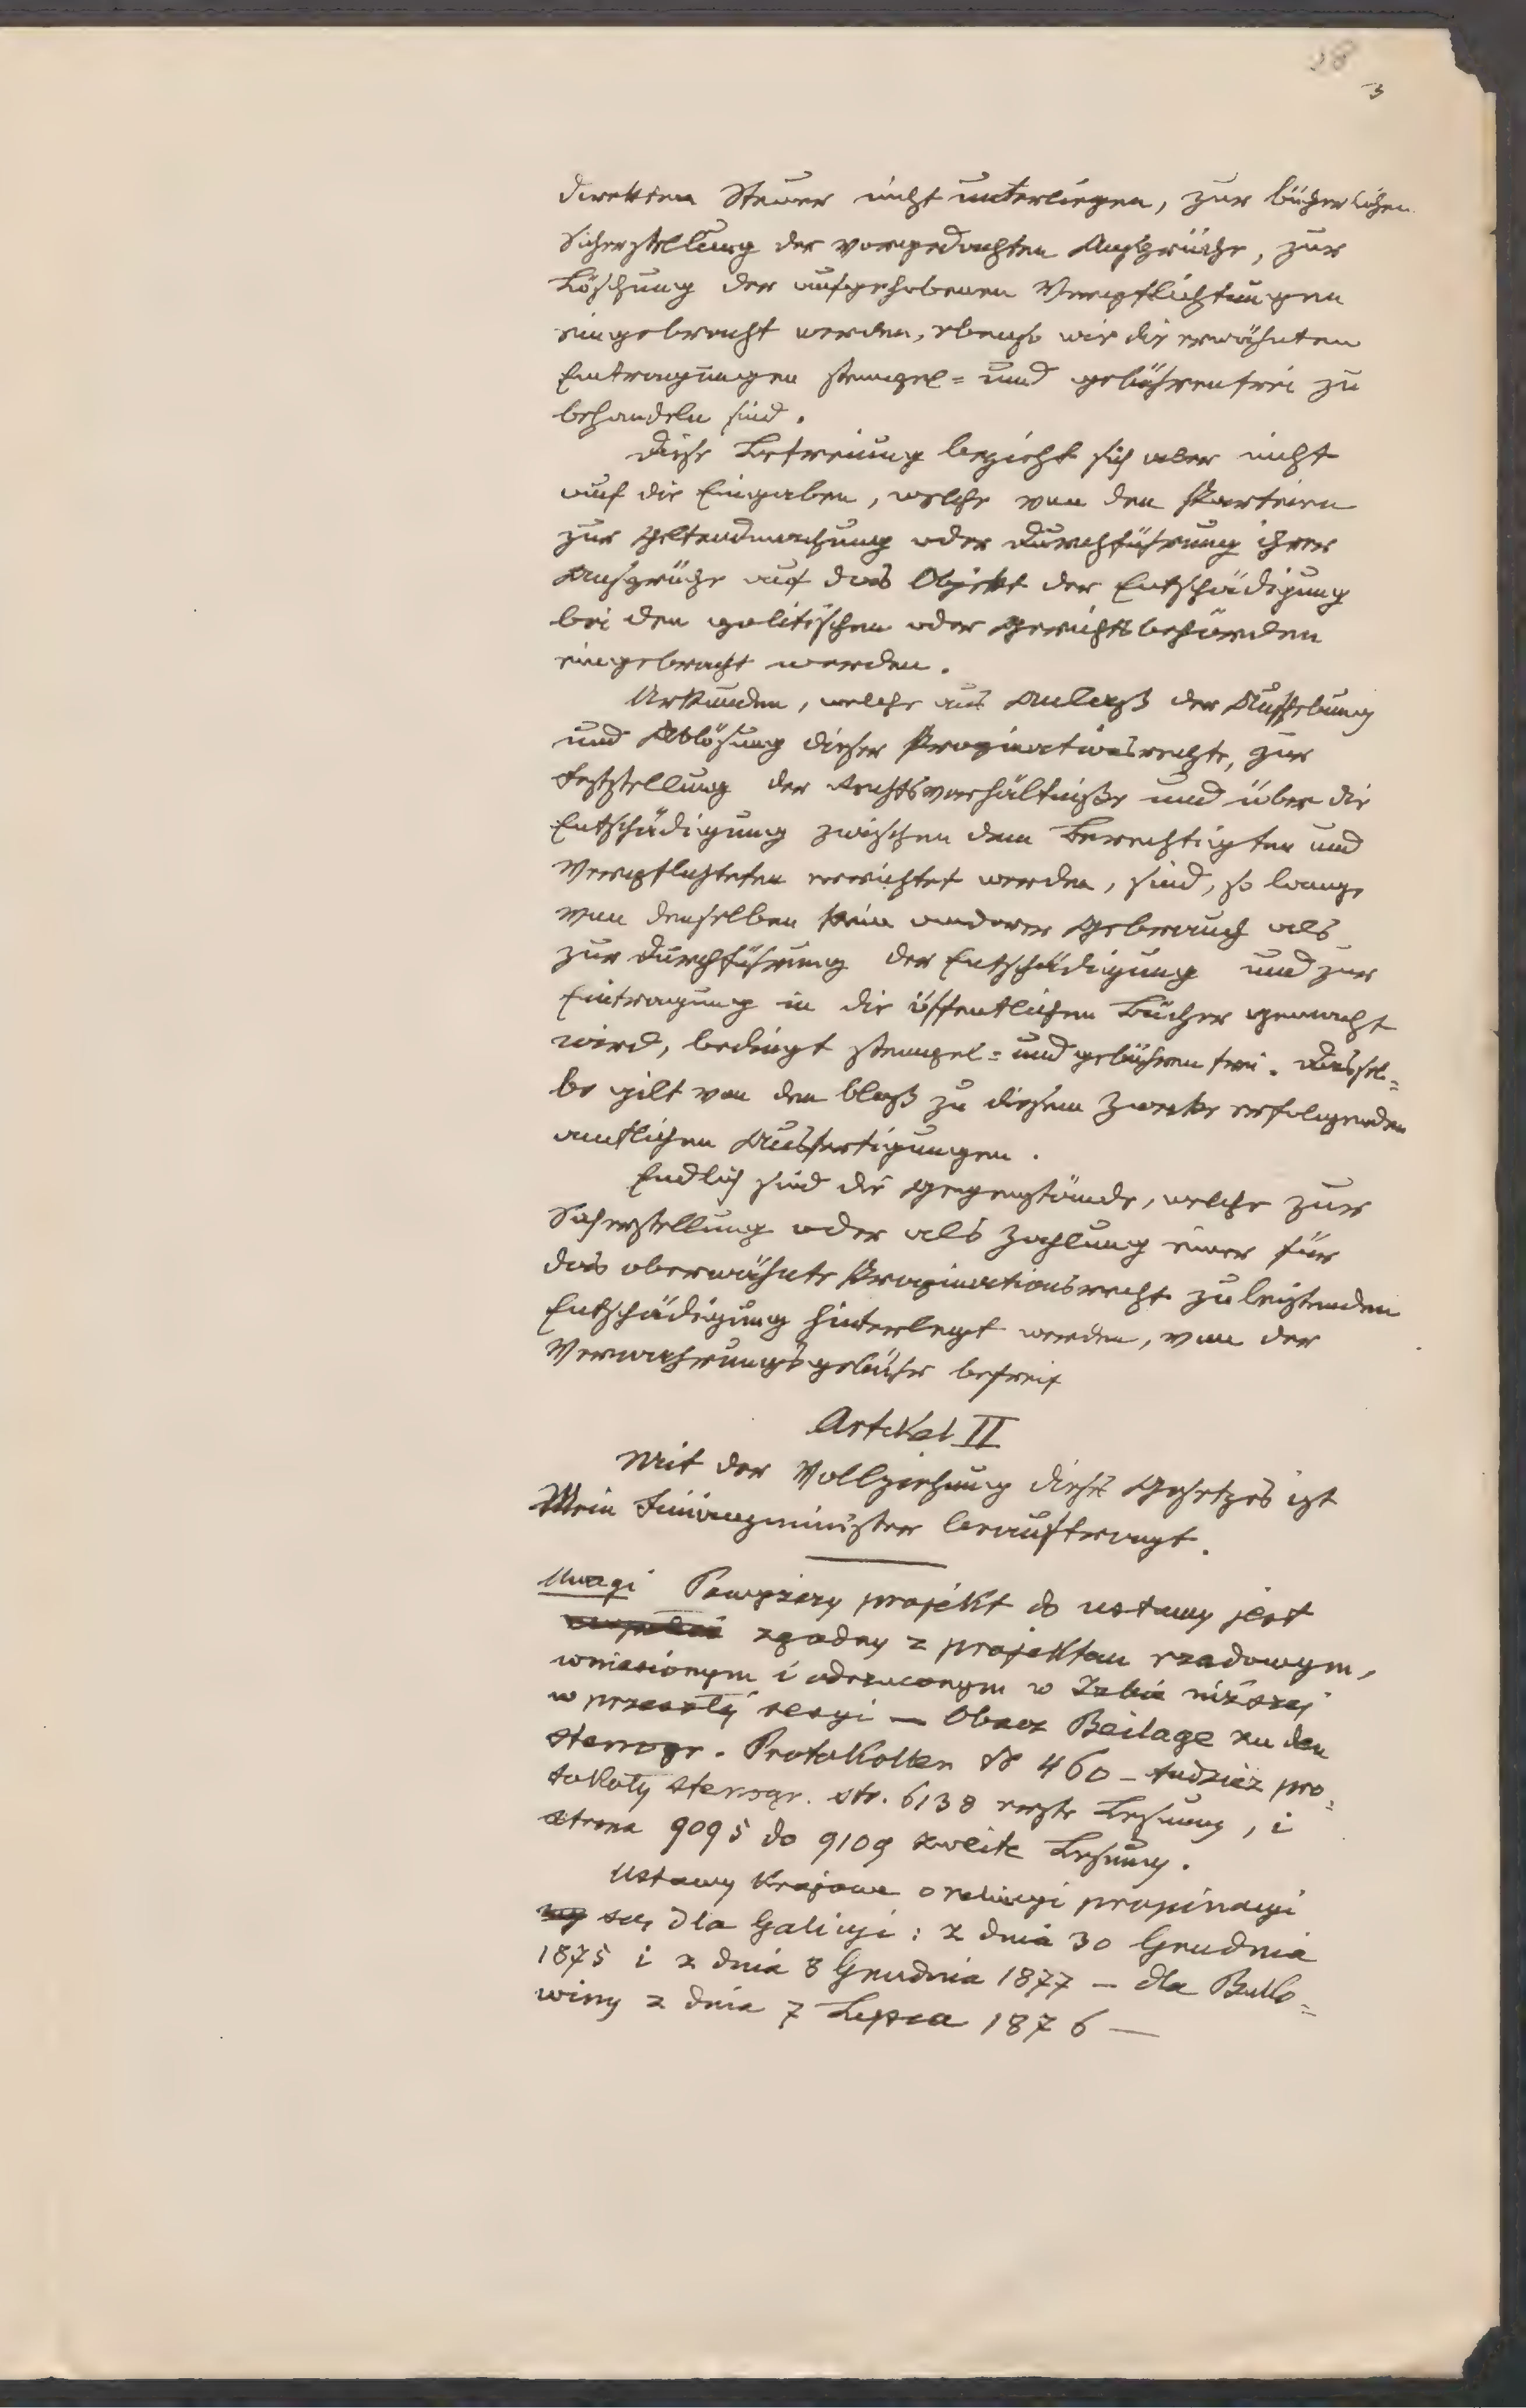 3
direkten Steuer nicht unterliegen, zur bücherlichen
Sicherstellung der vorgedachten Ansprüche, zur
Löschung der aufgehobenen Verpflichtungen
eingebracht werden, ebenso wie die erwähnten
Eintragungen stempel= und gebührenfrei zu
behandeln sind.
Diese Befreiung bezieht sich aber nicht
auf die Eingaben, welche von den Parteien
zur Geltendmachung oder Durchführung ihrer
Ansprüche auf das Objekt der Entschädigung
bei den politischen oder Gerichtsbehörden
eingebracht werden.
Urkunden, welche aus Anlaß der Aufhebung
und Ablösung dieser Propinationsrechte, zur
Feststellung der Rechtsverhältniße und über die
Entschädigung zwischen dem Berechtigten und
Verpflichteten errichtet werden, sind, so lange
von denselben kein anderer Gebrauch als
zur Durchführung der Entschädigung und zur
Eintragung in die öffentlichen Bücher gemacht
wird, bedingt stempel= und gebührenfrei. Dassel=
be gilt von den bloß zu diesem Zwecke erfolgenden
amtlichen Ausfertigungen.
Endlich sind die Gegenstände, welche zur
Sicherstellung oder als Zahlung einer für
das oberwähnte Propinationsrecht zu leistenden
Entschädigung hinterlegt werden, von der
Verwahrungsgebühr befreit
Artikel II
Mit der Vollziehung dieses Gesetzes ist
Mein Finanzminister beauftragt.
Uwagi Powyższy projekt do ustawy jest
zgodny z projektem rządowym,
wniesionym i odrzuconym w Izbie niższej
w przeszłej sesyi — Obacz Beilage zu den
stenogr. Protokollen № 460 — tudzież pro=
tokoły stenogr. str. 6138 erste Lesung, i
strona 9095 do 9109 zweite Lesung.
Ustawy Krajowe o relucyi propinacyi
są, dla Galicyi: z dnia 30 Grudnia
1875 i z dnia 8 Grudnia 1877 — dla Buko=
winy z dnia 7 Lipca 1876 —